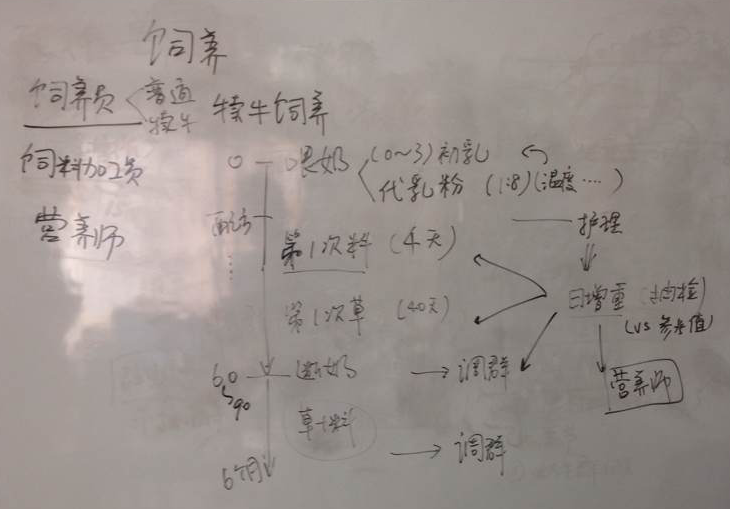 饲养
饲养员 普通 犊牛
犊牛饲养
饲料加工员
营养师
0 喂奶 (0~3)初乳
代乳粉 (1:8)(温度…)
配方
⋮
护理
第1次料 (4天)
第1次草 (40天)
日增重
(vs 参考值)
60
90
断奶 → 调群
营养师
草+料
→ 调群
6个月